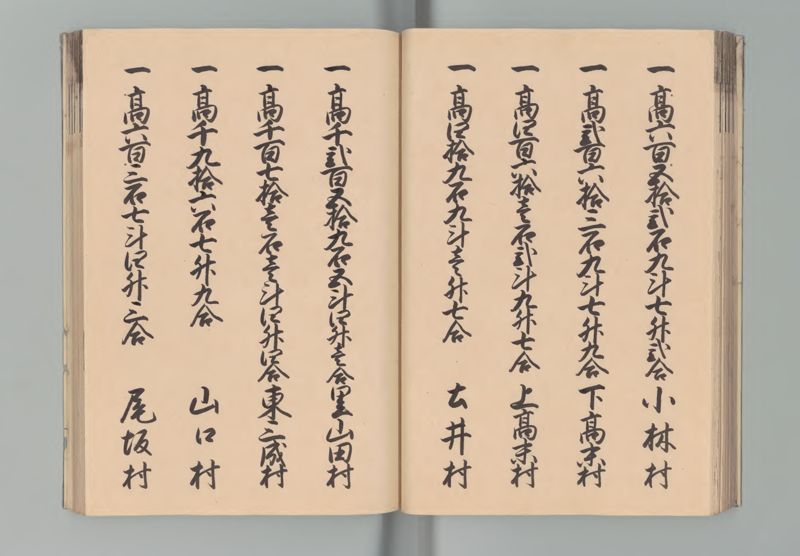 一 高六百五拾弐石九斗七升弐合 小林村
一 高弐百六拾三石九斗七升九合 下高末村
一 高四百六拾壱石弐斗九升七合 上高末村
一 高四拾九石九斗壱升七合 土井村
一 高千弐百五拾九石五斗四升壱合 黒山田村
一 高千百七拾壱石壱斗四升四合 東三成村
一 高千九拾六石七升九合 山口村
一 高六百三石七斗四升三合 尾坂村